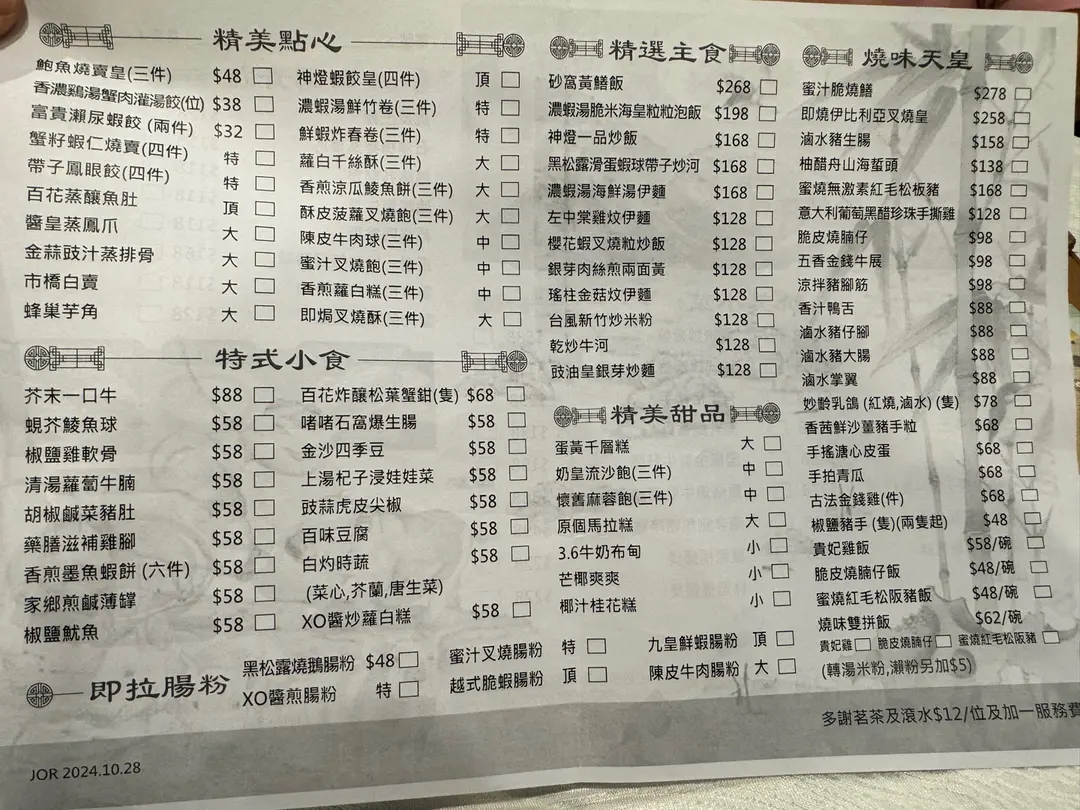 精美點心
鮑魚燒賣皇(三件) $48
香濃鷄湯蟹肉灌湯餃(位) $38
富貴瀨尿蝦餃 (兩件) $32
蟹籽蝦仁燒賣(四件) 特
帶子鳳眼餃(四件) 特
百花蒸釀魚肚 頂
醬皇蒸鳳爪 大
金蒜豉汁蒸排骨 大
市橋白賣 大
蜂巢芋角 大
神燈蝦餃皇(四件) 頂
濃蝦湯鮮竹卷(三件) 特
鮮蝦炸春卷(三件) 特
蘿白千絲酥(三件) 大
香煎涼瓜鯪魚餅(三件) 大
酥皮菠蘿叉燒飽(三件) 大
陳皮牛肉球(三件) 中
蜜汁叉燒飽(三件) 中
香煎蘿白糕(三件) 中
即焗叉燒酥(三件) 大
特式小食
芥末一口牛 $88
蜆芥鯪魚球 $58
椒鹽雞軟骨 $58
清湯蘿蔔牛腩 $58
胡椒鹹菜豬肚 $58
藥膳滋補雞腳 $58
香煎墨魚蝦餅 (六件) $58
家鄉煎鹹薄罉 $58
椒鹽魷魚 $58
百花炸釀松葉蟹鉗(隻) $68
啫啫石窩爆生腸 $58
金沙四季豆 $58
上湯杞子浸娃娃菜 $58
豉蒜虎皮尖椒 $58
百味豆腐 $58
白灼時蔬 $58
(菜心,芥蘭,唐生菜)
XO醬炒蘿白糕 $58
即拉腸粉
黑松露燒鵝腸粉 $48
XO醬煎腸粉 特
蜜汁叉燒腸粉 特
越式脆蝦腸粉 頂
九皇鮮蝦腸粉 頂
陳皮牛肉腸粉 大
精選主食
砂窩黃鱔飯 $268
濃蝦湯脆米海皇粒粒泡飯 $198
神燈一品炒飯 $168
黑松露滑蛋蝦球帶子炒河 $168
濃蝦湯海鮮湯伊麵 $168
左中棠雞炆伊麵 $128
櫻花蝦叉燒粒炒飯 $128
銀芽肉絲煎兩面黃 $128
瑤柱金菇炆伊麵 $128
台風新竹炒米粉 $128
乾炒牛河 $128
豉油皇銀芽炒麵 $128
精美甜品
蛋黃千層糕 大
奶皇流沙飽(三件) 中
懷舊麻蓉飽(三件) 中
原個馬拉糕 大
3.6牛奶布甸 小
芒椰爽爽 小
椰汁桂花糕 小
燒味天皇
蜜汁脆燒鱔 $278
即燒伊比利亞叉燒皇 $258
滷水豬生腸 $158
柚醋舟山海蜇頭 $138
蜜燒無激素紅毛松板豬 $168
意大利葡萄黑醋珍珠手撕雞 $128
脆皮燒腩仔 $98
五香金錢牛展 $98
涼拌豬腳筋 $98
香汁鴨舌 $88
滷水豬仔腳 $88
滷水豬大腸 $88
滷水掌翼 $88
妙齡乳鴿 (紅燒,滷水) (隻) $78
香茜鮮沙薑豬手粒 $68
手搖溏心皮蛋 $68
手拍青瓜 $68
古法金錢雞(件) $68
椒鹽豬手 (隻)(兩隻起) $48
貴妃雞飯 $58/碗
脆皮燒腩仔飯 $48/碗
蜜燒紅毛松阪豬飯 $48/碗
燒味雙拼飯 $62/碗
貴妃雞 脆皮燒腩仔 蜜燒紅毛松阪豬
(轉湯米粉,瀨粉另加$5)
多謝茗茶及滾水$12/位及加一服務費
JOR 2024.10.28